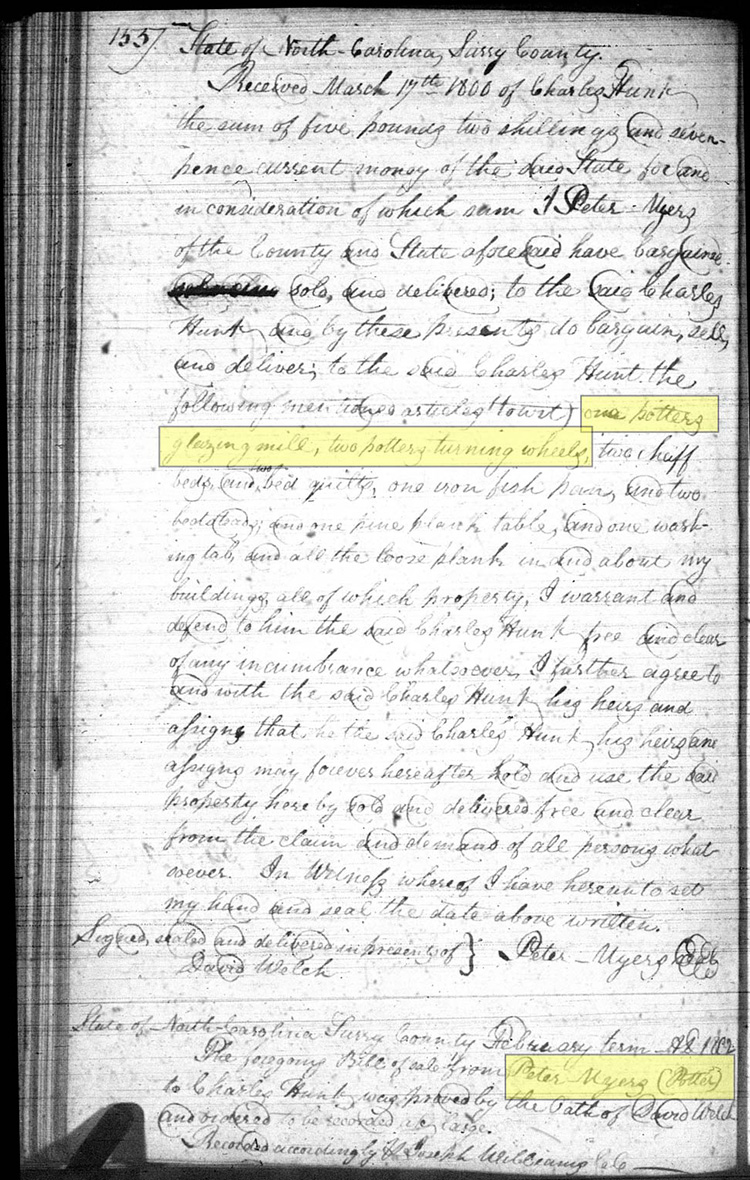 155/. State of North-Carolina, Surry County.
Received March 17th 1800 of Charles Hunt
the sum of five pounds two shillings and seven-
pence current money of the said State for and
in consideration of which sum I Peter Myers
of the County and State aforesaid have bargaine
sold, and delivered; to the said Charles
Hunt and by these presents do bargain, sell,
and deliver; to the said Charles Hunt the
following mentioned articles (towit) one potters
glazing mill, two potters turning wheels, two chaff
beds, and two bed quilts, one iron fish pan, and two
bedsteads; and one pine plank table, and one wash-
ing tub, and all the loose plank in and about my
buildings, all of which property, I warrant and
defend to him the said Charles Hunt free and clear
of any incumbrance whatsoever, I further agree to
and with the said Charles Hunt his heirs and
assigns that he the said Charles Hunt his heirs and
assigns may forever hereafter hold and use the said
property hereby sold and delivered free and clear
from the claim and demand of all persons what
soever. In Witness whereof I have hereunto set
my hand and seal the date above written.
Signed, sealed and delivered in presents of } Peter Myers
David Welch
State of North-Carolina Surry County February term AD 1802
The foregoing Bill of sale from Peter Myers (Potter)
to Charles Hunt was proved by the Oath of David Welch
and ordered to be recorded
Recorded accordingly Joseph Williams